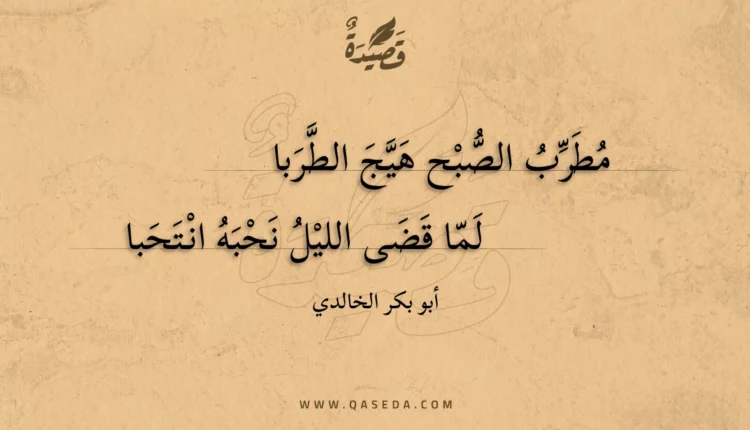 قَصِيْدَةٌ
مُطَرِّبُ الصُّبْحِ هَيَّجَ الطَّرَبا
لَمّا قَضَى الليْلُ نَحْبَهُ انْتَحَبا
أبو بكر الخالدي
WWW.QASEDA.COM